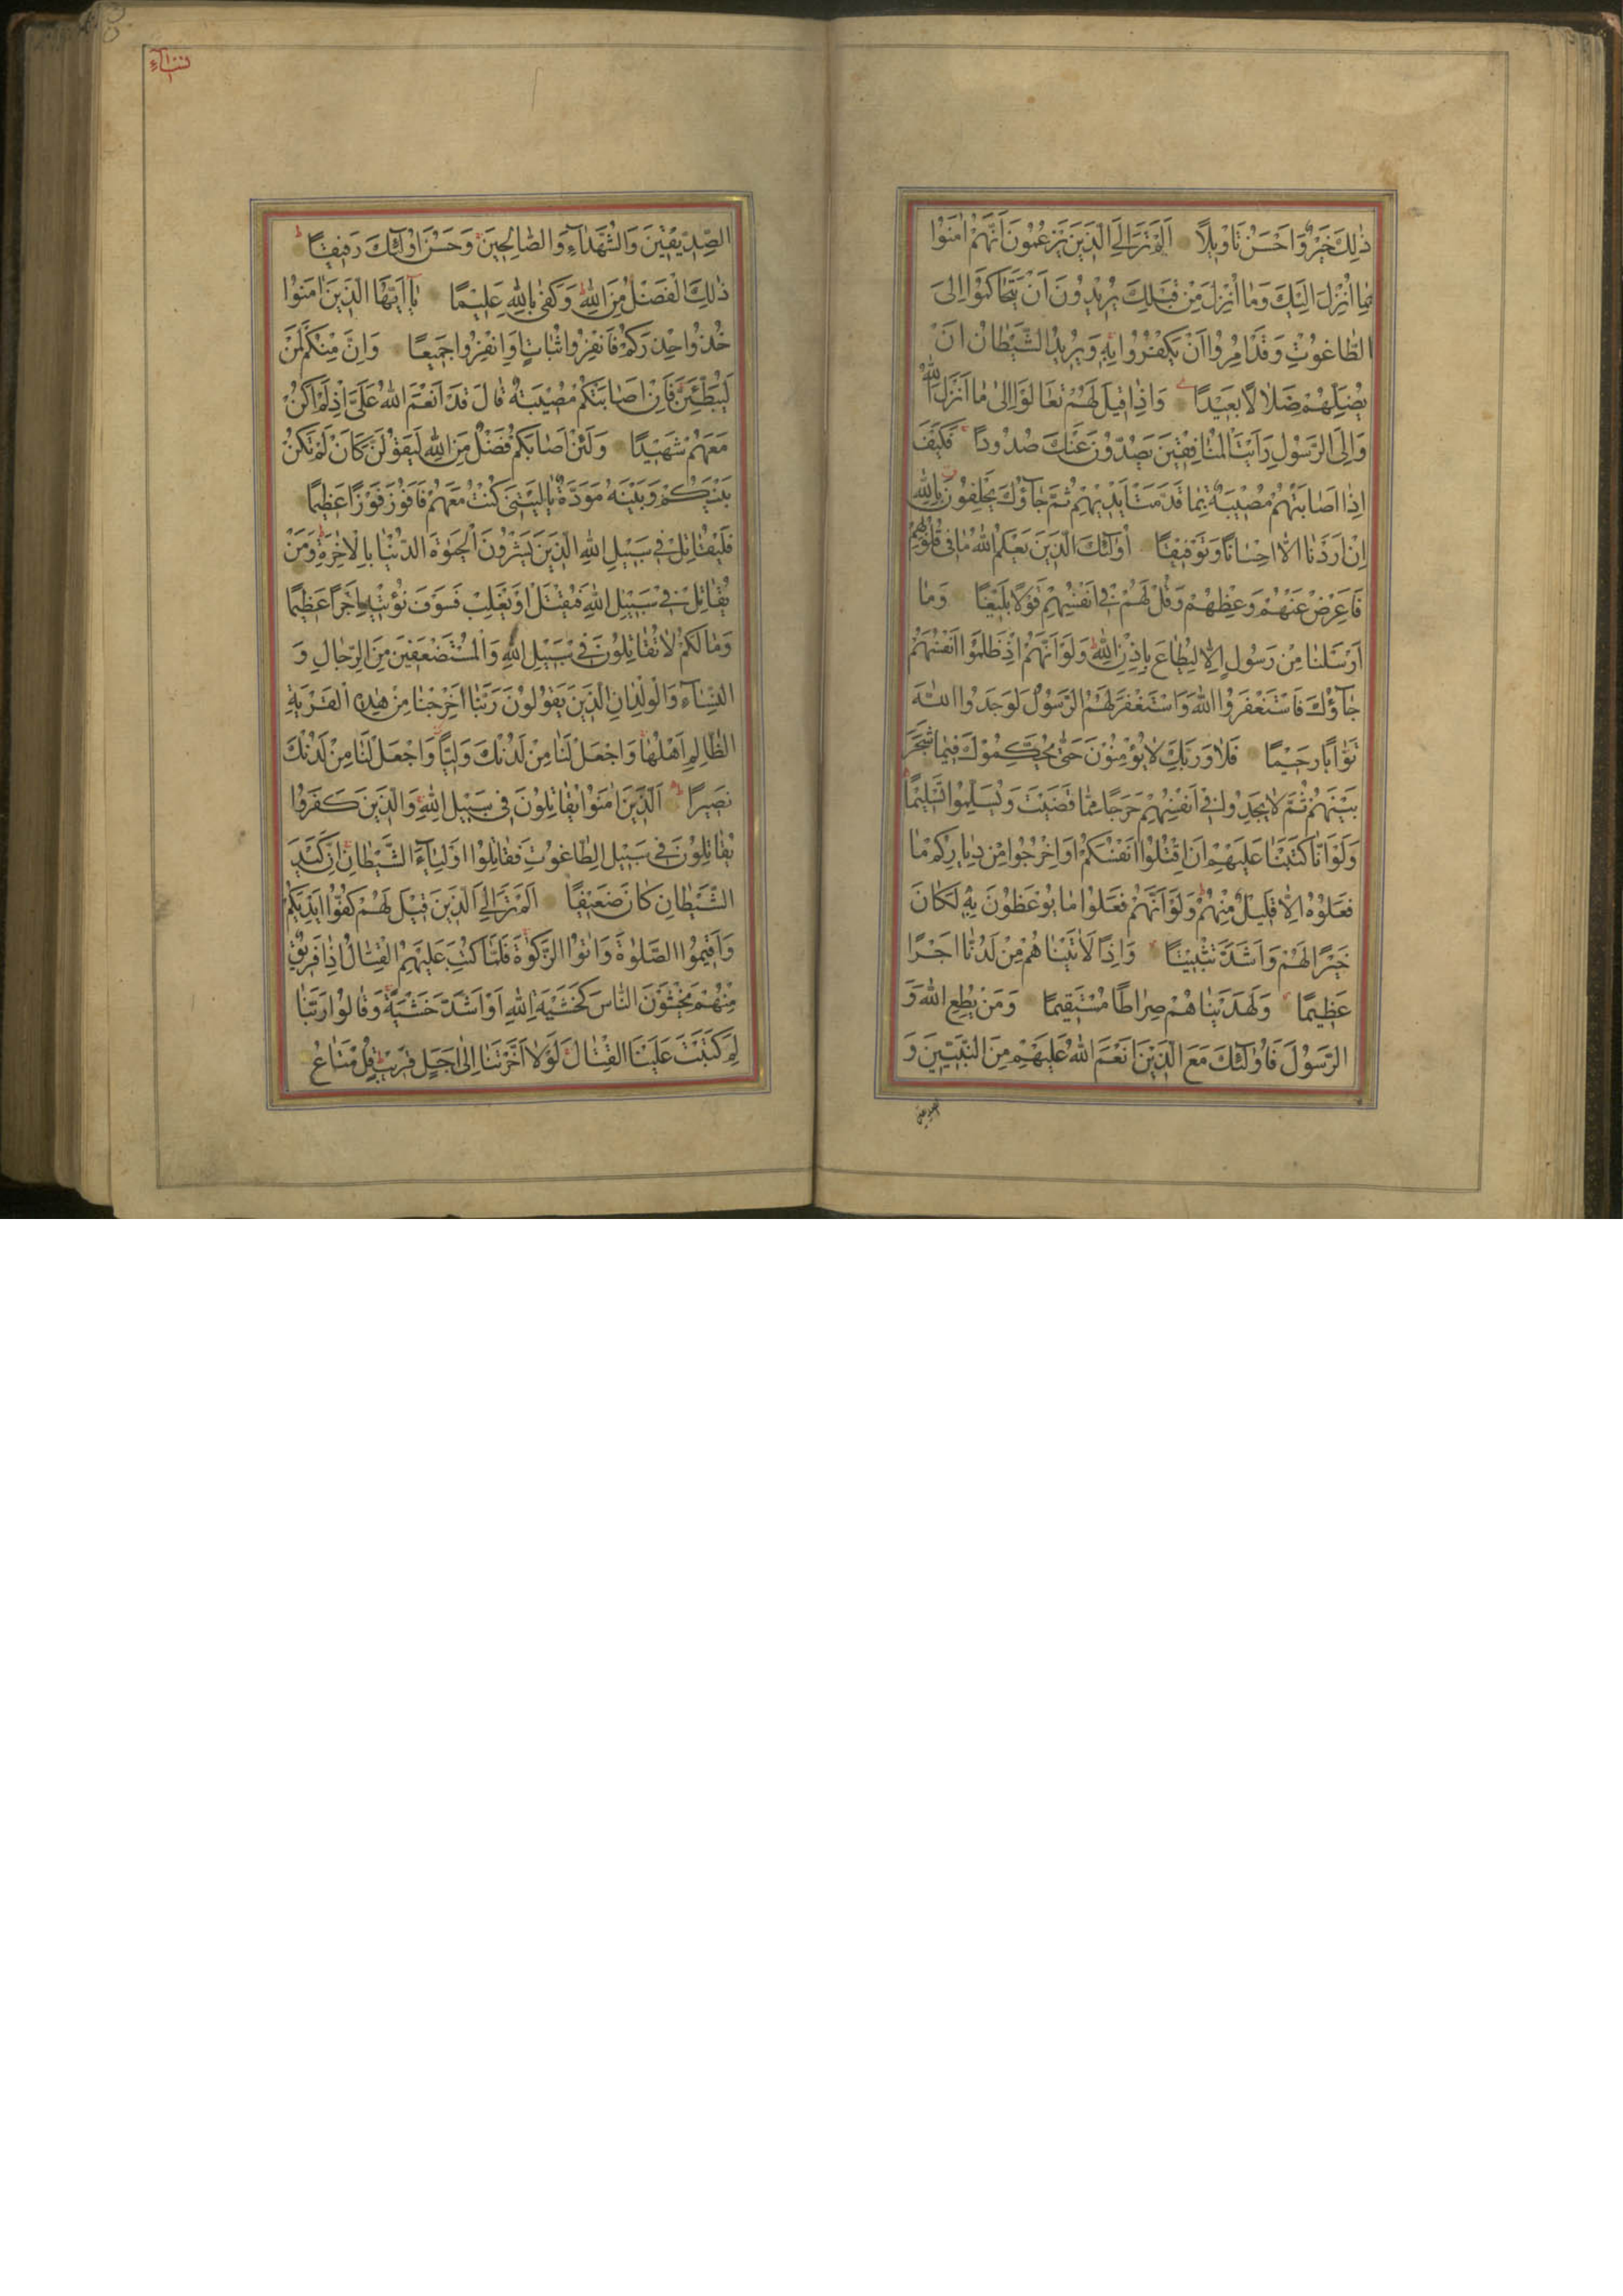 ذٰلِكَ خَيْرٌ وَاَحْسَنُ تَاْوِيلًا اَلَمْ تَرَ اِلَى الَّذِينَ يَزْعُمُونَ اَنَّهُمْ اٰمَنُوْا
بِمٰا اُنْزِلَ اِلَيْكَ وَمٰا اُنْزِلَ مِنْ قَبْلِكَ يُرٖيدُونَ اَنْ يَتَحٰاكَمُوْا اِلَى
الطّٰاغُوتِ وَقَدْ اُمِرُوا اَنْ يَكْفُرُوا بِهٖ وَيُرٖيدُ الشَّيْطٰانُ اَنْ
يُضِلَّهُمْ ضَلٰالًا بَعٖيدًا وَاِذٰا قٖيلَ لَهُمْ تَعٰالَوْا اِلىٰ مٰا اَنْزَلَ اللّٰهُ
وَاِلَى الرَّسُولِ رَاَيْتَ الْمُنٰافِقٖينَ يَصُدُّونَ عَنْكَ صُدُودًا فَكَيْفَ
اِذٰا اَصٰابَتْهُمْ مُصٖيبَةٌ بِمٰا قَدَّمَتْ اَيْدٖيهِمْ ثُمَّ جٰآؤُكَ يَحْلِفُونَ بِاللّٰهِ
اِنْ اَرَدْنٰا اِلّٰا اِحْسٰانًا وَتَوْفٖيقًا اُولٰئِكَ الَّذٖينَ يَعْلَمُ اللّٰهُ مٰا فٖى قُلُوبِهِمْ
فَاَعْرِضْ عَنْهُمْ وَعِظْهُمْ وَقُلْ لَهُمْ فٖى اَنْفُسِهِمْ قَوْلًا بَلٖيغًا وَمٰا
اَرْسَلْنٰا مِنْ رَسُولٍ اِلّٰا لِيُطٰاعَ بِاِذْنِ اللّٰهِ وَلَوْ اَنَّهُمْ اِذْ ظَلَمُوْا اَنْفُسَهُمْ
جٰآؤُكَ فَاسْتَغْفَرُوا اللّٰهَ وَاسْتَغْفَرَ لَهُمُ الرَّسُولُ لَوَجَدُوا اللّٰهَ
تَوّٰابًا رَحٖيمًا فَلٰا وَرَبِّكَ لٰا يُؤْمِنُوْنَ حَتّٰى يُحَكِّمُوْكَ فٖيمٰا شَجَرَ
بَيْنَهُمْ ثُمَّ لٰا يَجِدُوا فٖى اَنْفُسِهِمْ حَرَجًا مِمّٰا قَضَيْتَ وَيُسَلِّمُوا تَسْلٖيمًا
وَلَوْ اَنّٰا كَتَبْنٰا عَلَيْهِمْ اَنِ اقْتُلُوا اَنْفُسَكُمْ اَوِ اخْرُجُوا مِنْ دِيٰارِكُمْ مٰا
فَعَلُوْهُ اِلّٰا قَلٖيلٌ مِنْهُمْ وَلَوْ اَنَّهُمْ فَعَلُوا مٰا يُوْعَظُوْنَ بِهٖ لَكٰانَ
خَيْرًا لَهُمْ وَاَشَدَّ تَثْبٖيتًا وَاِذًا لَاٰتَيْنٰاهُمْ مِنْ لَدُنّٰا اَجْرًا
عَظٖيمًا وَلَهَدَيْنٰاهُمْ صِرٰاطًا مُسْتَقٖيمًا وَمَنْ يُطِعِ اللّٰهَ وَ
الرَّسُولَ فَاُولٰئِكَ مَعَ الَّذٖينَ اَنْعَمَ اللّٰهُ عَلَيْهِمْ مِنَ النَّبِيّٖينَ وَ
الصديقين
نساء
الصِّدّٖيقٖينَ وَالشُّهَدٰآءِ وَالصّٰالِحٖينَ وَحَسُنَ اُولٰئِكَ رَفٖيقًا
ذٰلِكَ الْفَضْلُ مِنَ اللّٰهِ وَكَفىٰ بِاللّٰهِ عَلٖيمًا يٰآ اَيُّهَا الَّذٖينَ اٰمَنُوْا
خُذُوا حِذْرَكُمْ فَانْفِرُوا ثُبٰاتٍ اَوِ انْفِرُوا جَمٖيعًا وَاِنَّ مِنْكُمْ لَمَنْ
لَيُبَطِّئَنَّ فَاِنْ اَصٰابَتْكُمْ مُصٖيبَةٌ قٰالَ قَدْ اَنْعَمَ اللّٰهُ عَلَىَّ اِذْ لَمْ اَكُنْ
مَعَهُمْ شَهٖيدًا وَلَئِنْ اَصٰابَكُمْ فَضْلٌ مِنَ اللّٰهِ لَيَقُوْلَنَّ كَاَنْ لَمْ تَكُنْ
بَيْنَكُمْ وَبَيْنَهُ مَوَدَّةٌ يٰا لَيْتَنٖى كُنْتُ مَعَهُمْ فَاَفُوْزَ فَوْزًا عَظٖيمًا
فَلْيُقٰاتِلْ فٖى سَبٖيلِ اللّٰهِ الَّذٖينَ يَشْرُونَ الْحَيٰوةَ الدُّنْيٰا بِالْاٰخِرَةِ وَمَنْ
يُقٰاتِلْ فٖى سَبٖيلِ اللّٰهِ فَيُقْتَلْ اَوْ يَغْلِبْ فَسَوْفَ نُؤْتٖيهِ اَجْرًا عَظٖيمًا
وَمٰا لَكُمْ لٰا تُقٰاتِلُونَ فٖى سَبٖيلِ اللّٰهِ وَالْمُسْتَضْعَفٖينَ مِنَ الرِّجٰالِ وَ
النِّسٰآءِ وَالْوِلْدٰانِ الَّذٖينَ يَقُوْلُوْنَ رَبَّنٰا اَخْرِجْنٰا مِنْ هٰذِهِ الْقَرْيَةِ
الظّٰالِمِ اَهْلُهٰا وَاجْعَلْ لَنٰا مِنْ لَدُنْكَ وَلِيًّا وَاجْعَلْ لَنٰا مِنْ لَدُنْكَ
نَصٖيرًا اَلَّذٖينَ اٰمَنُوْا يُقٰاتِلُونَ فٖى سَبٖيلِ اللّٰهِ وَالَّذٖينَ كَفَرُوا
يُقٰاتِلُونَ فٖى سَبٖيلِ الطّٰاغُوتِ فَقٰاتِلُوا اَوْلِيٰآءَ الشَّيْطٰانِ اِنَّ كَيْدَ
الشَّيْطٰانِ كٰانَ ضَعٖيفًا اَلَمْ تَرَ اِلَى الَّذٖينَ قٖيلَ لَهُمْ كُفُّوْا اَيْدِيَكُمْ
وَاَقٖيمُوا الصَّلٰوةَ وَاٰتُوا الزَّكٰوةَ فَلَمّٰا كُتِبَ عَلَيْهِمُ الْقِتٰالُ اِذٰا فَرٖيقٌ
مِنْهُمْ يَخْشَوْنَ النّٰاسَ كَخَشْيَةِ اللّٰهِ اَوْ اَشَدَّ خَشْيَةً وَقٰالُوْا رَبَّنٰا
لِمَ كَتَبْتَ عَلَيْنَا الْقِتٰالَ لَوْلٰا اَخَّرْتَنٰا اِلىٰ اَجَلٍ قَرٖيبٍ قُلْ مَتٰاعُ